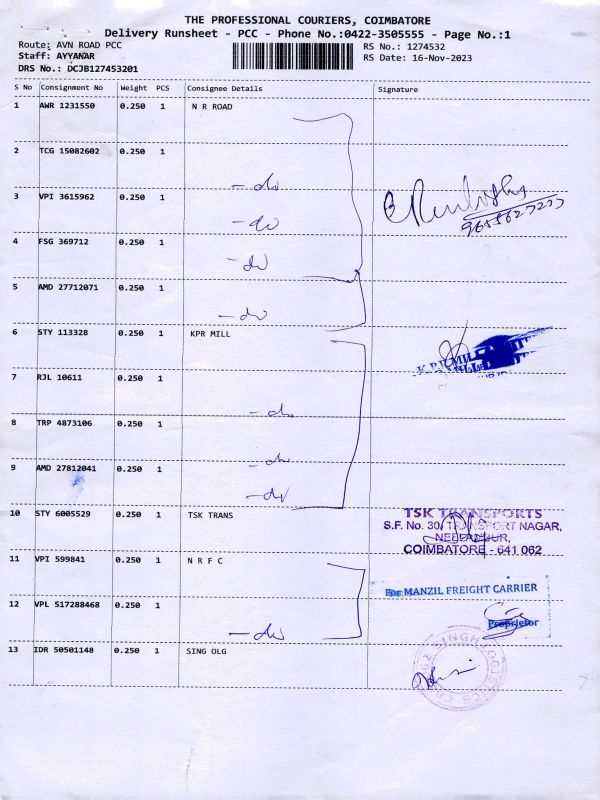 THE PROFESSIONAL COURIERS, COIMBATORE
Delivery Runsheet - PCC - Phone No.:0422-3505555 - Page No.:1
Route: AVN ROAD PCC
RS No.: 1274532
Staff: AYYANAR
RS Date: 16-Nov-2023
DRS No.: DCJB127453201
S No Consignment No Weight PCS Consignee Details Signature
1 AWR 1231550 0.250 1 N R ROAD
2 TCG 15082602 0.250 1
- do
3 VPI 3615962 0.250 1
- do
4 FSG 369712 0.250 1
- do
5 AMD 27712071 0.250 1
- do
6 STY 113328 0.250 1 KPR MILL
K.P.R MILL
7 RJL 10611 0.250 1
- do
8 TRP 4873106 0.250 1
- do
9 AMD 27812041 0.250 1
- do
10 STY 6005529 0.250 1 TSK TRANS
TSK TRANSPORTS
S.F. No. 30, TRANSPORT NAGAR,
NEELAMBUR,
COIMBATORE - 641 062
11 VPI 599841 0.250 1 N R F C
For MANZIL FREIGHT CARRIER
12 VPL 517288468 0.250 1
- do
Proprietor
13 IDR 50501148 0.250 1 SING OLG
SINGH LOGISTICS